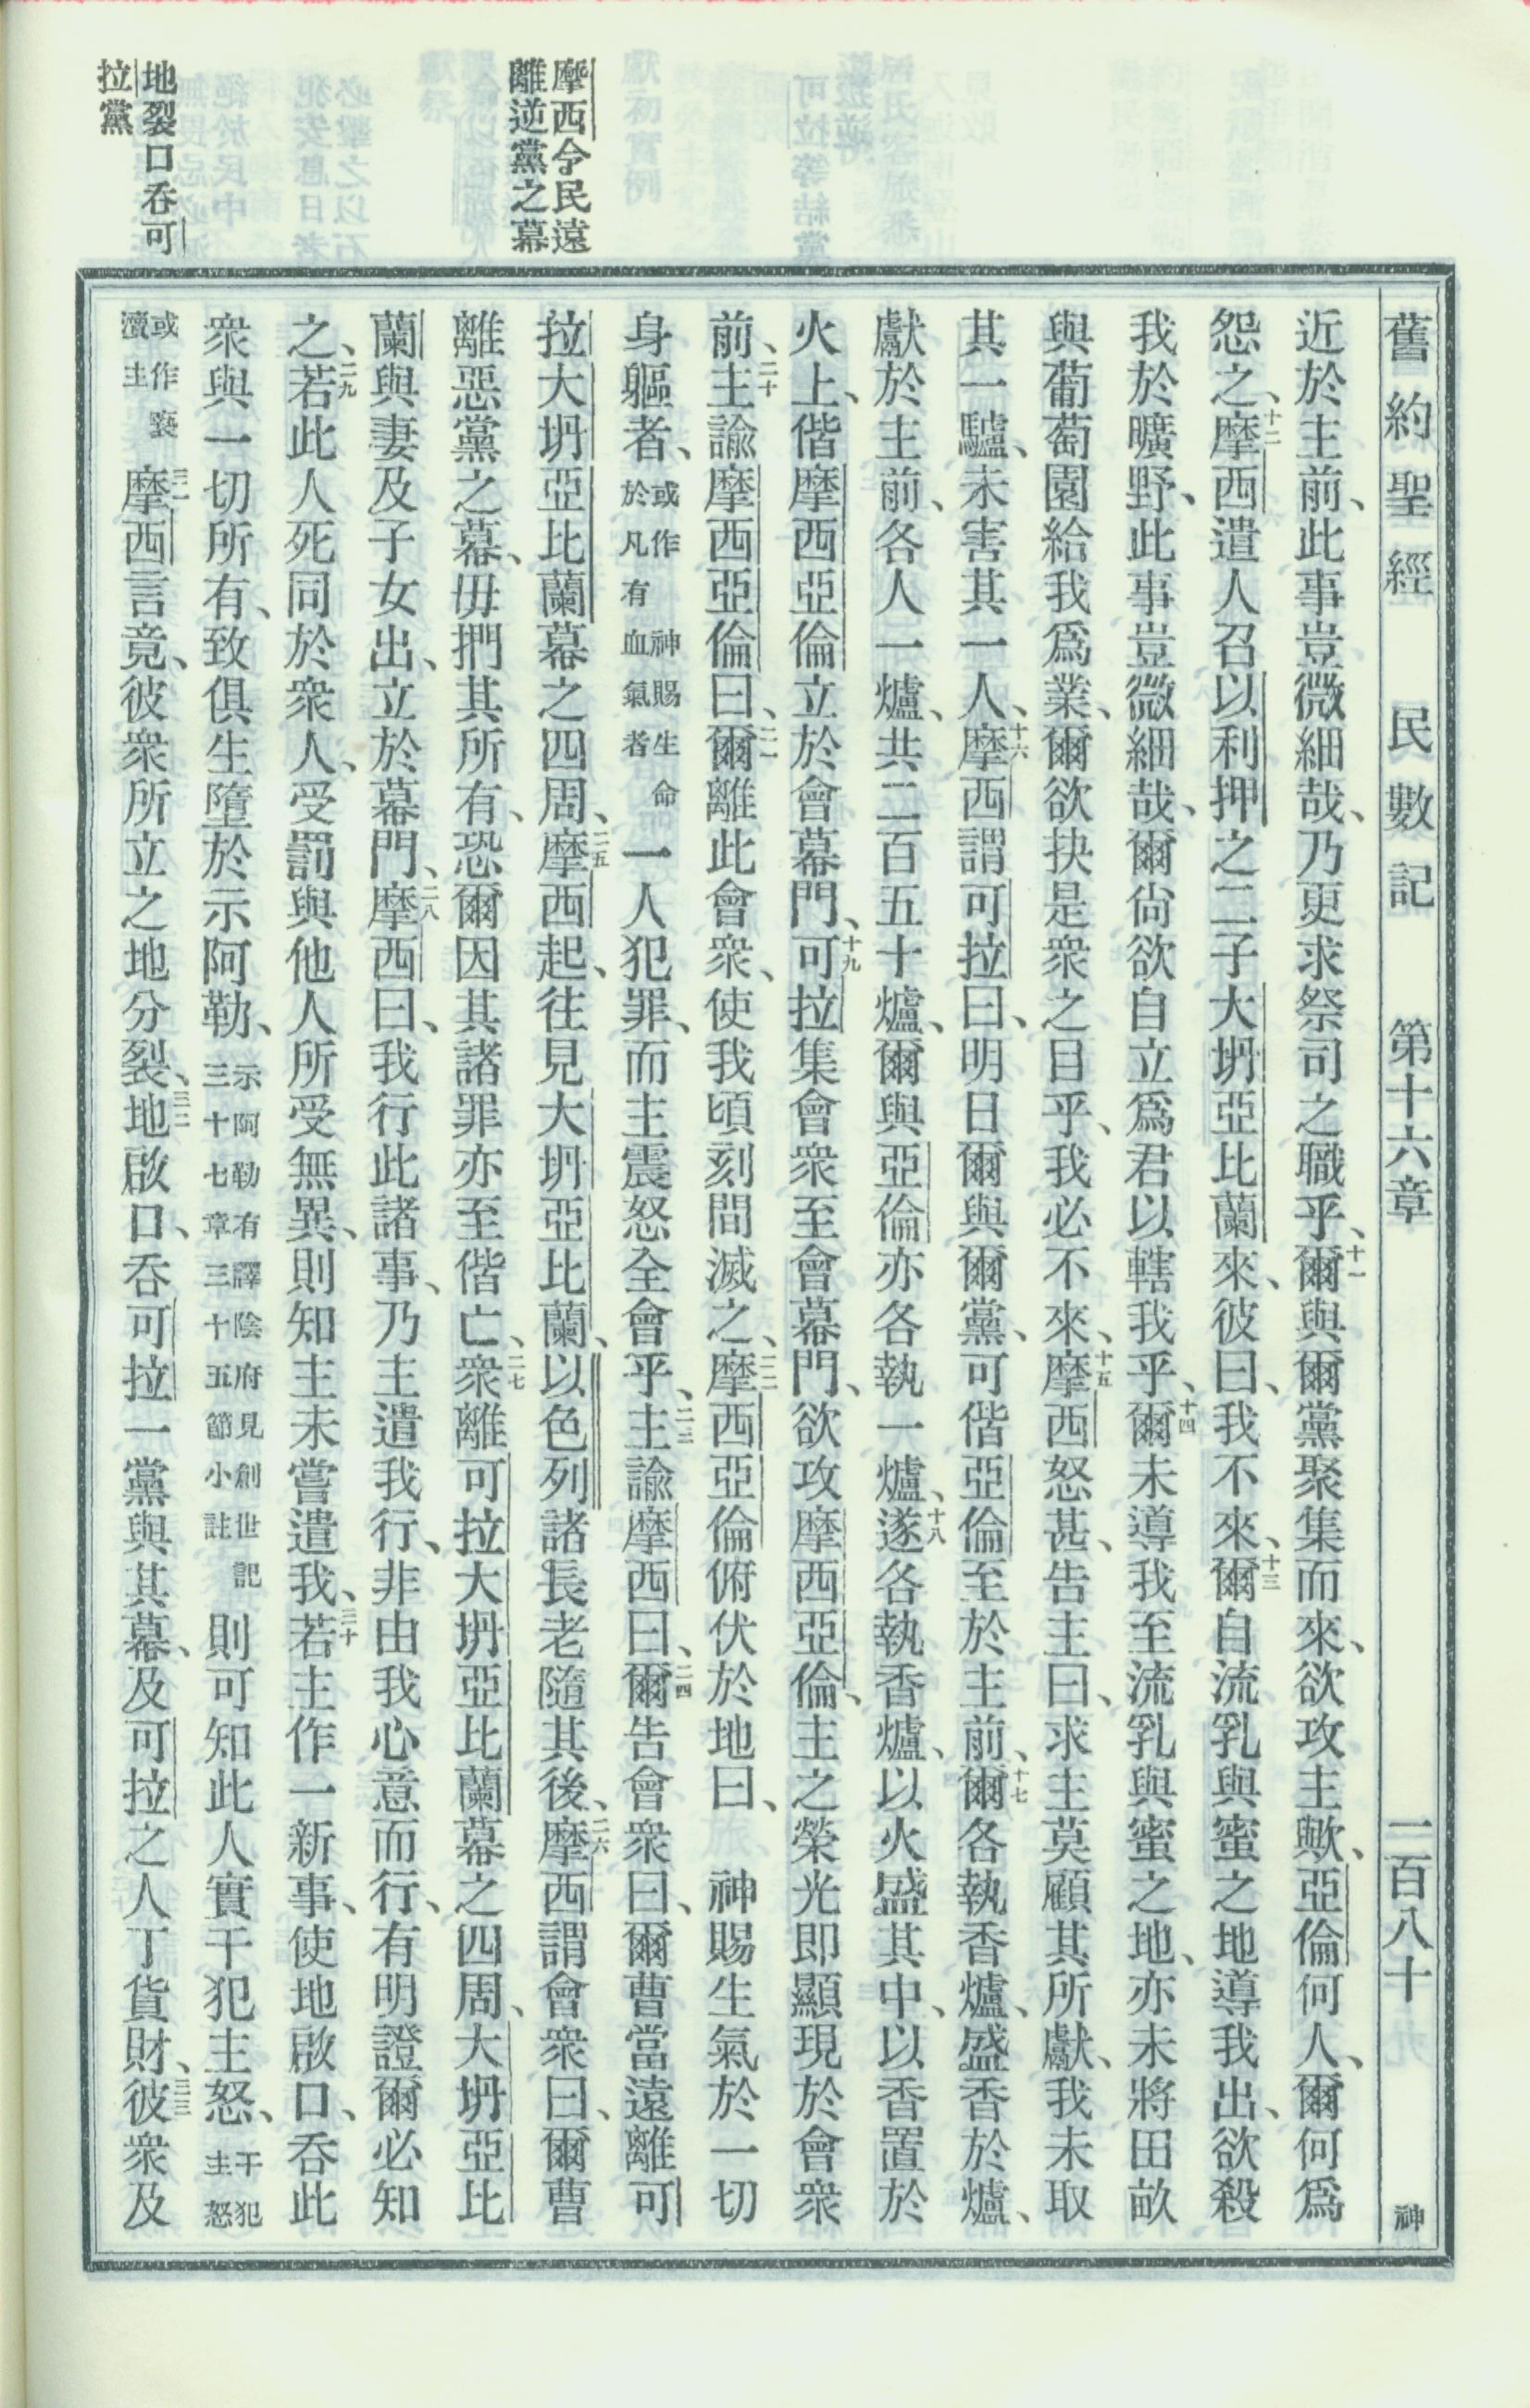 舊約聖經 民數記 第十六章 一百八十 神
近於主前、此事豈微細哉、乃更求祭司之職乎、十一爾與爾黨聚集而來、欲攻主歟、亞倫何人、爾何爲
怨之、十二摩西遣人召以利押之二子大坍亞比蘭來、彼曰、我不來、十三爾自流乳與蜜之地導我出、欲殺
我於曠野、此事豈微細哉、爾尙欲自立爲君以轄我乎、十四爾未導我至流乳與蜜之地、亦未將田畝
與葡萄園給我爲業、爾欲抉是衆之目乎、我必不來、十五摩西怒甚、告主曰、求主莫顧其所獻、我未取
其一驢、未害其一人、十六摩西謂可拉曰、明日爾與爾黨、可偕亞倫至於主前、十七爾各執香爐、盛香於爐、
獻於主前、各人一爐、共二百五十爐、爾與亞倫亦各執一爐、十八遂各執香爐、以火盛其中、以香置於
火上、偕摩西亞倫立於會幕門、十九可拉集會衆至會幕門、欲攻摩西亞倫、主之榮光卽顯現於會衆
前、二十主諭摩西亞倫曰、二一爾離此會衆、使我頃刻間滅之、二二摩西亞倫俯伏於地曰、神賜生氣於一切
身軀者、或作神賜生命於凡有血氣者一人犯罪、而主震怒全會乎、二三主諭摩西曰、二四爾告會衆曰、爾曹當遠離可
拉大坍亞比蘭幕之四周、二五摩西起、往見大坍亞比蘭、以色列諸長老隨其後、二六摩西謂會衆曰、爾曹
離惡黨之幕、毋捫其所有、恐爾因其諸罪亦至偕亡、二七衆離可拉大坍亞比蘭幕之四周、大坍亞比
蘭與妻及子女出、立於幕門、二八摩西曰、我行此諸事、乃主遣我行、非由我心意而行、有明證爾必知
之、二九若此人死同於衆人、受罰與他人所受無異、則知主未嘗遣我、三十若主作一新事、使地啟口、吞此
衆與一切所有、致俱生墮於示阿勒、示阿勒有譯陰府見創世記三十七章三十五節小註則可知此人實干犯主怒、干犯主怒
或作褻瀆主三一摩西言竟、彼衆所立之地分裂、三二地啟口、吞可拉一黨與其幕、及可拉之人丁貨財、三三彼衆及
摩西令民遠
離逆黨之幕
地裂口吞可
拉黨